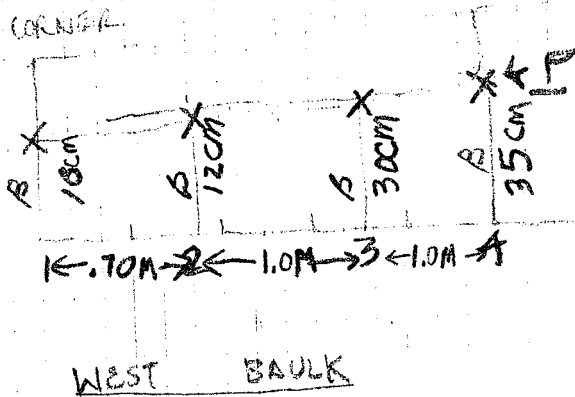 CORNER
B 18cm
B 12cm
B 30cm
B 35cm
1 ←.70M→ 2 ← 1.0M → 3 ←1.0M→ 4
WEST BAULK